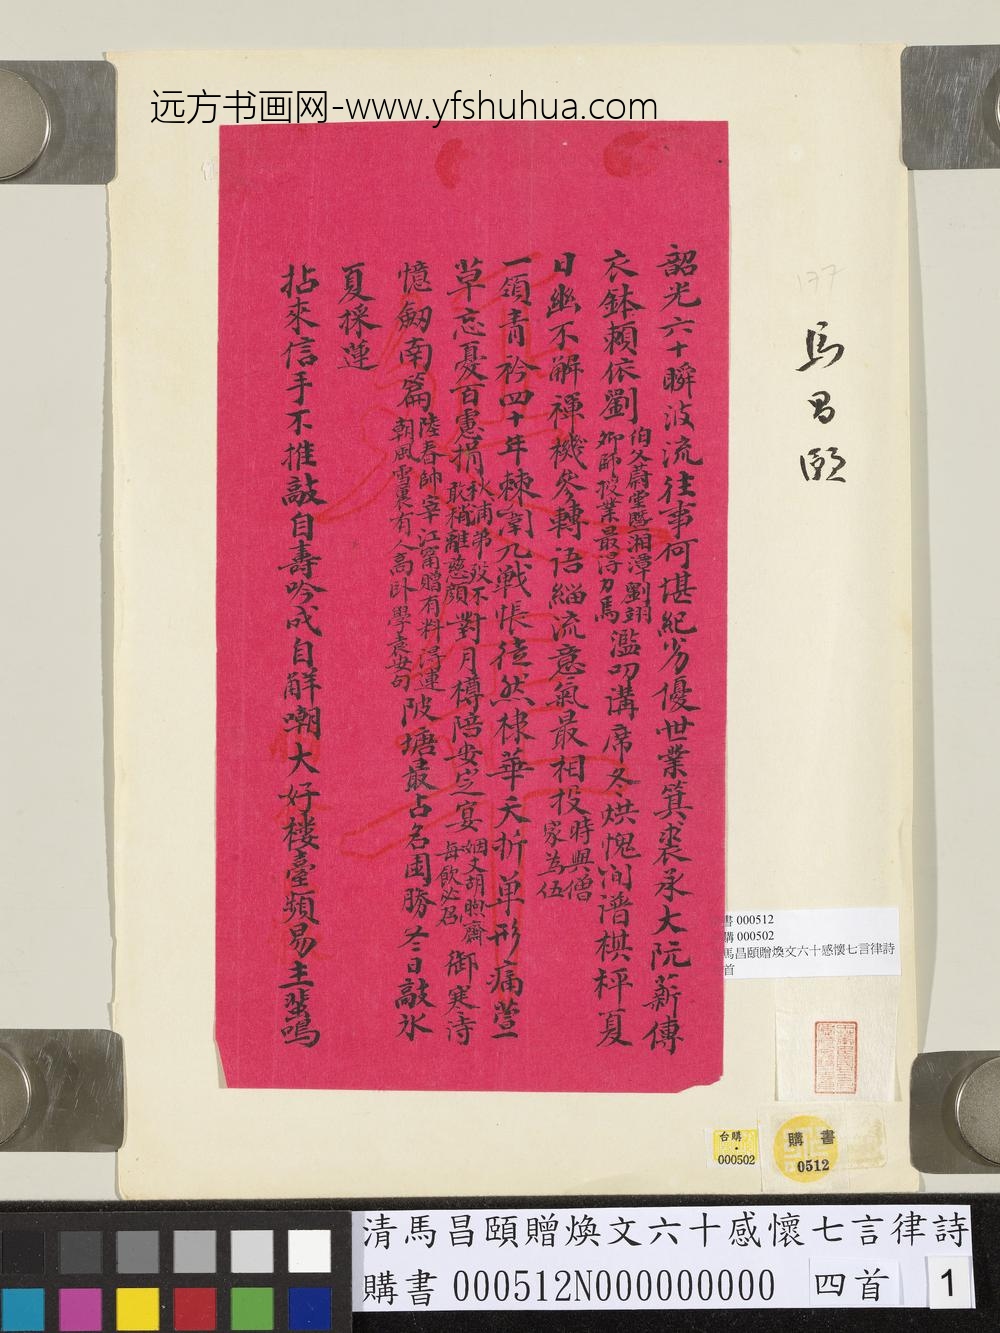 远方书画网-www.yfshuhua.com
177
馬昌頤
韶光六十瞬波流往事何堪紀劣優世業箕裘承大阮薪傳
衣鉢賴依劉伯父蔚堂 湘潭劉翊
卿師授業最得力焉濫叨講席冬烘愧間譜棋枰夏
日幽不解禪機多轉語緇流意氣最相投時與僧
家為伍
一領青衿四十年棘闈九戰悵徒然棣華夭折單形痛萱
草忘憂百慮捐秋浦弟歿不
敢稍離慈顏對月樽陪安定宴姻丈胡煦齋
每飲必召御寒詩
憶劍南篇陸春帥宰江甯贈有料得連
朝風雪裏有人高卧學袁安句陂塘最占名園勝冬日敲冰
夏採蓮
拈來信手不推敲自壽吟成自解嘲大好樓臺頻易主蜚鳴
書 000512
購 000502
馬昌頤贈煥文六十感懷七言律詩
首
台購
000502
購書
0512
清馬昌頤贈煥文六十感懷七言律詩
購書 000512N000000000 四首 1